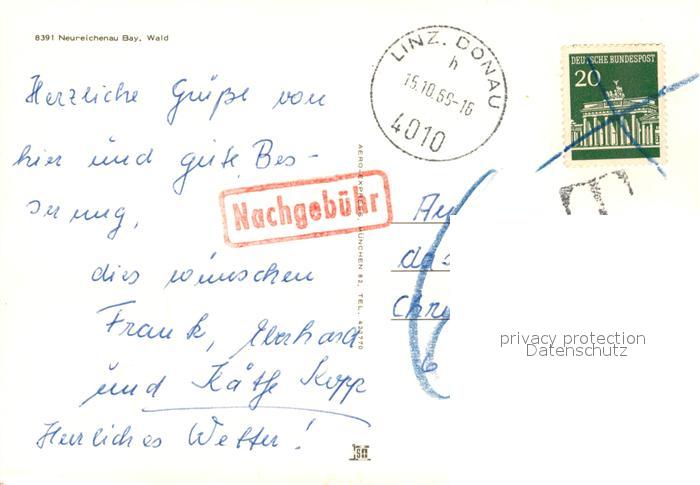 8391 Neureichenau Bay. Wald
Herzliche Grüße von
hier und gute Bes-
serung,
dies wünschen
Frank, Eberhard
und Käthe Kopp
Herrliches Wetter!
Nachgebühr
AERO-EXPRESS, MÜNCHEN 82, TEL. 426770
LINZ, DONAU
h
15.10.69-16
4010
DEUTSCHE BUNDESPOST
20
An
das
Chr
6
privacy protection
Datenschutz